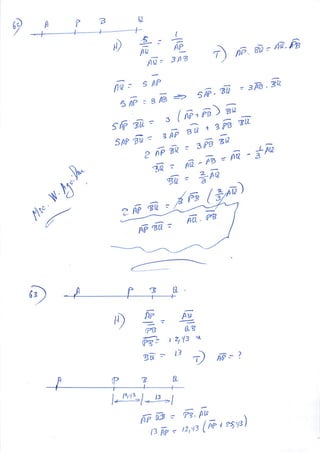 62) A P B Q
H) 5/AQ = 1/AP
AQ = 3AB
T) AP. BQ = AQ. PB
AQ = 5 AP
5 AP = 3 AB ⇒ 5AP. BQ = 3AB. BQ
5AP BQ = 3 (AP + PB) BQ
5AP BQ = 3AP BQ + 3 PB BQ
2 AP BQ = 3PB BQ
BQ = AQ - AB = AQ - 1/3 AQ
BQ = 2/3 AQ
2 AP BQ = 3 PB (2/3 AQ)
AP BQ = AQ. PB
63) A P B Q
H) AP/PB = AQ/QB
PB = 12,43
BQ = 13
T) AP = ?
A P B Q
12,43 13
AP QB = PB. AQ
13 AP = 12,43 (AP + 25,43)